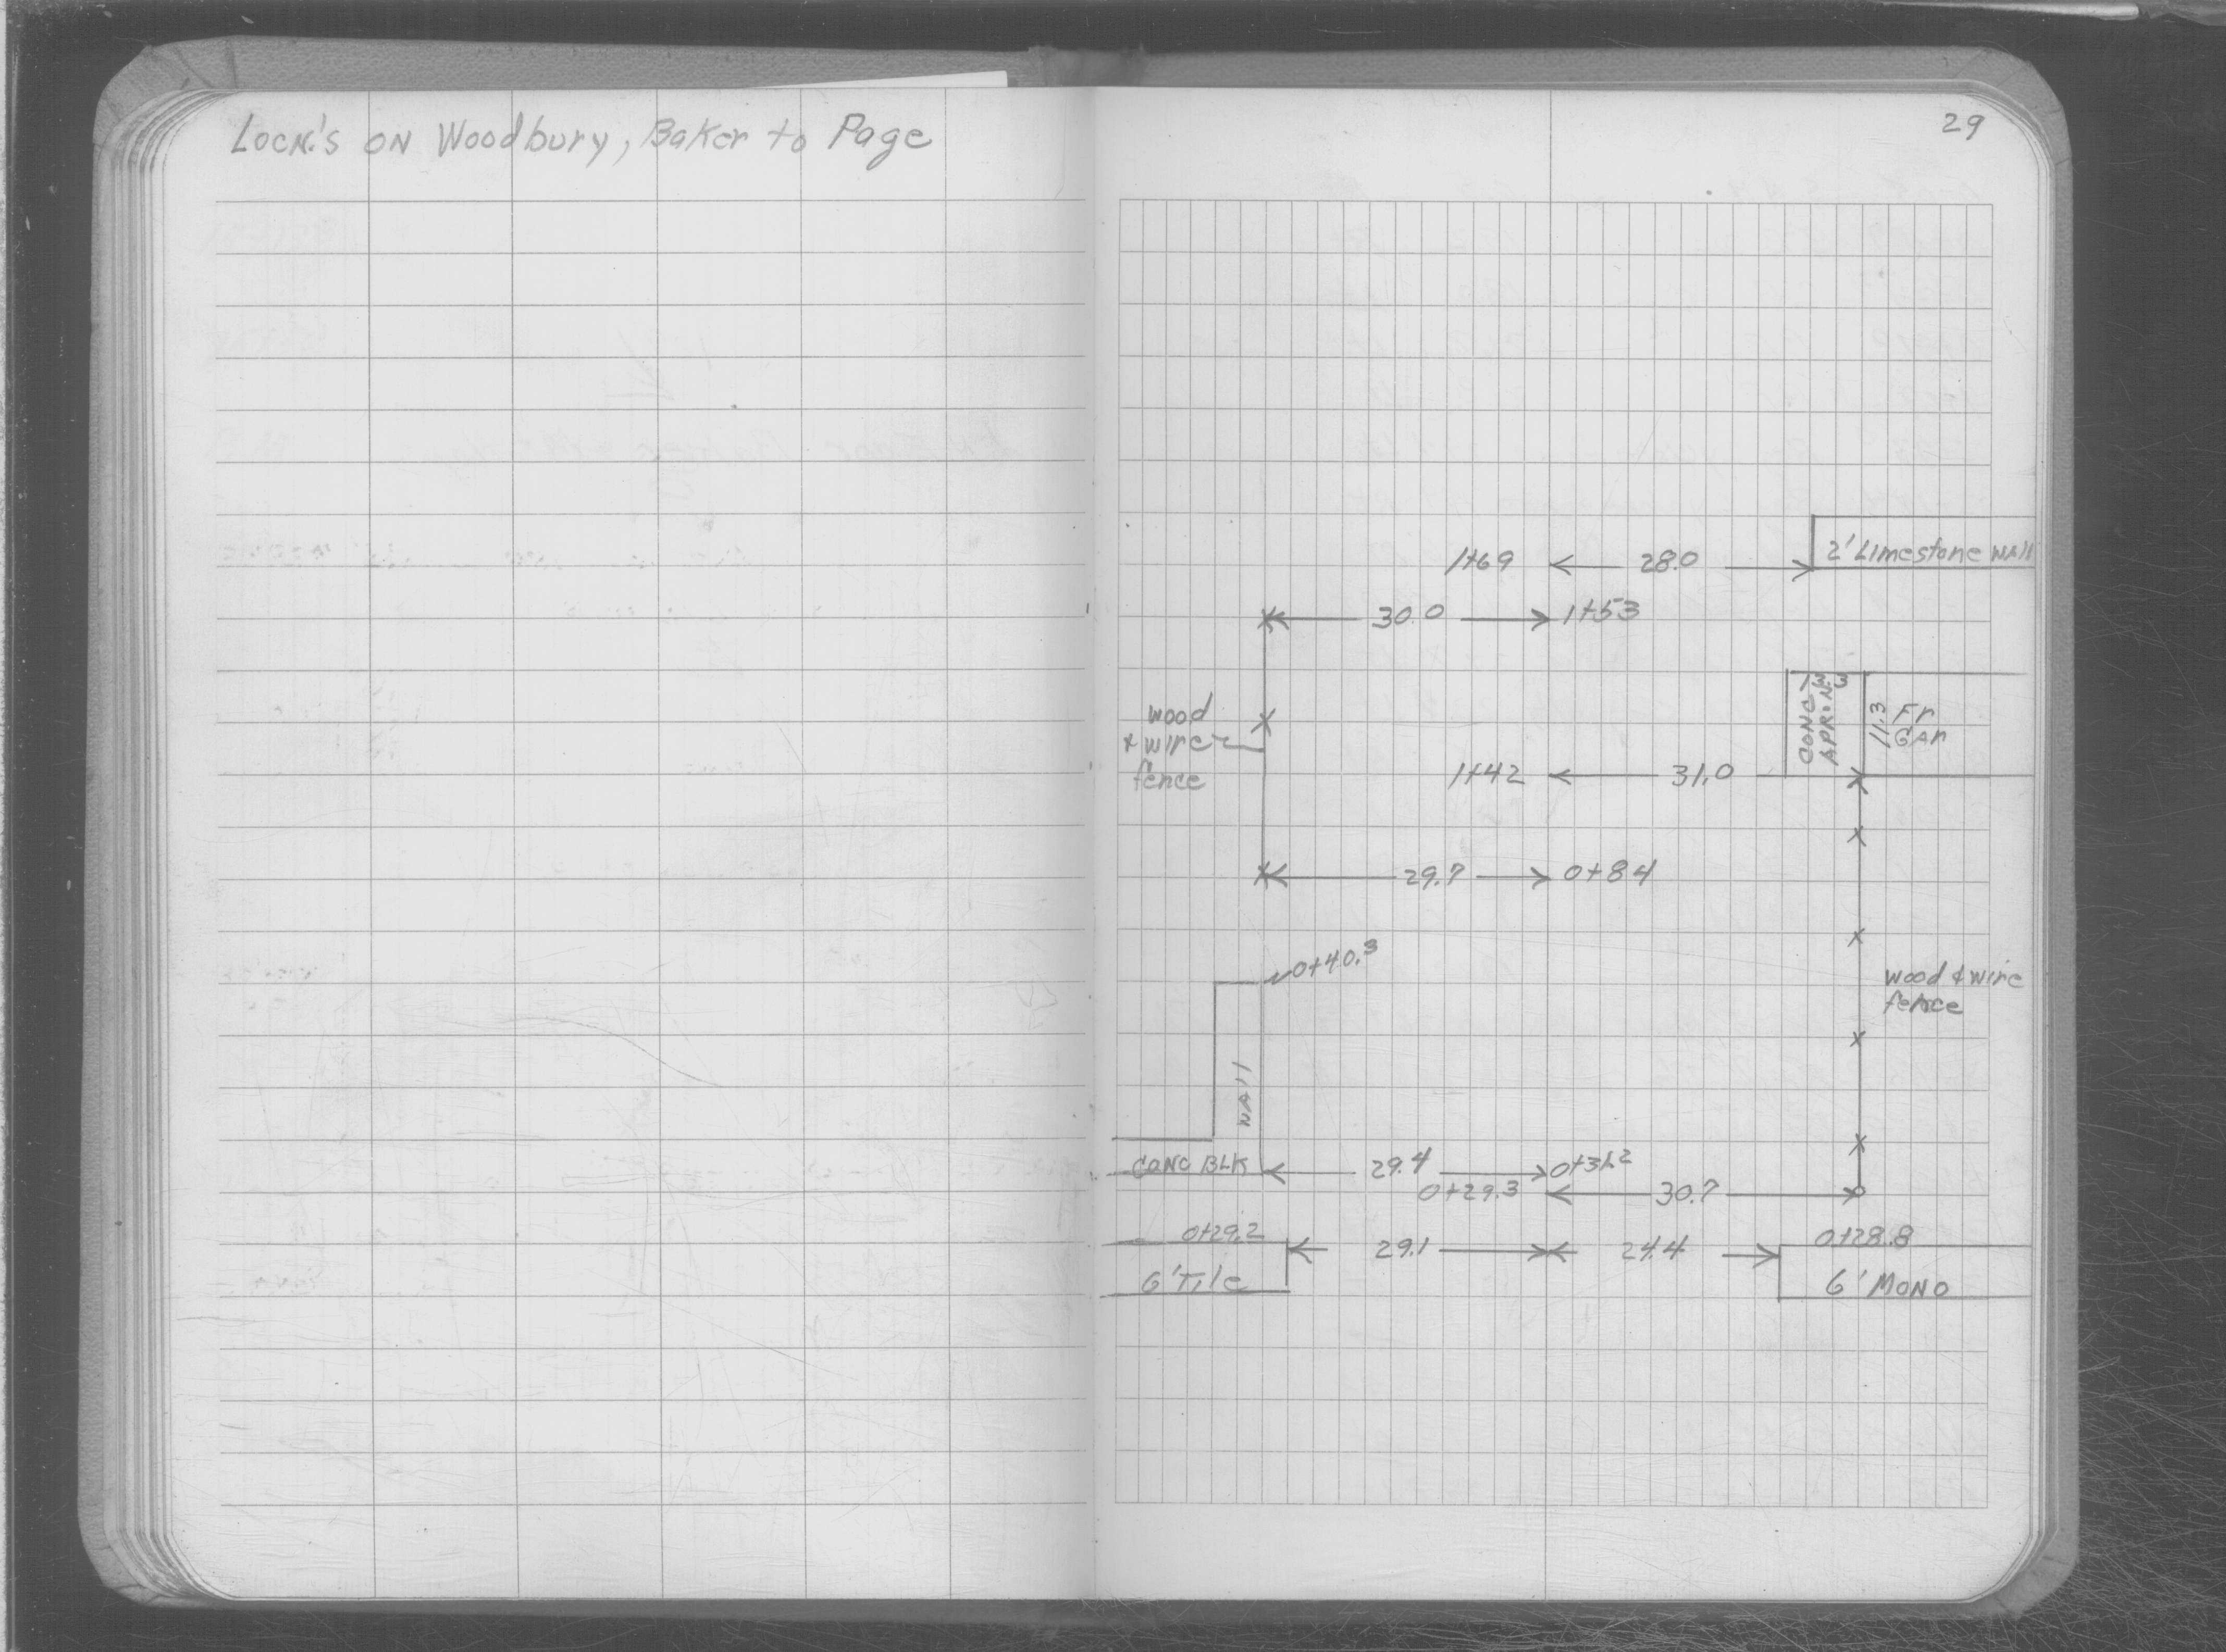 Locn.'s on Woodbury, Baker to Page
29
1+69 28.0 2' Limestone Wall
30.0 1+53
CONC
APRON
11.3
Fr
Gar
wood
& wire
fence
1+42 31.0
29.7 0+84
0+40.3
wood & wire
fence
WAll
CONC BLK 29.4
0+29.3 30.7
0+29.2 29.1 24.4 0+28.8
6' Tile 6' MONO